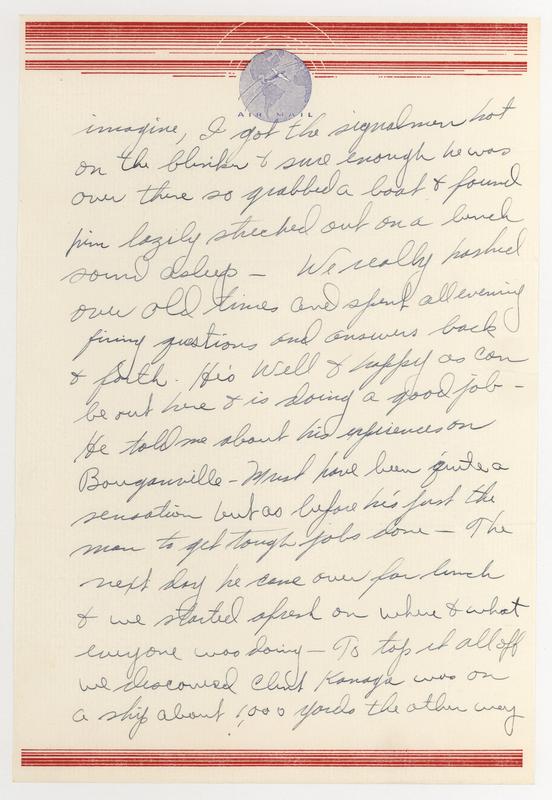 AIR MAIL
imagine, I got the signalmen hot
on the blinker & sure enough he was
over there so grabbed a boat & found
him lazily streched out on a bunch
sound asleep – We really hashed
over old times and spent all evening
firing questions and answers back
& forth. He's well & happy as can
be out here & is doing a good job –
He told me about his experiences on
Bouganville – Must have been quite a
sensation but as before he's just the
man to get tough jobs done – The
next day he came over for lunch
& we started afresh on where & what
everyone was doing – To top it all off
we discovered Clint Kanaga was on
a ship about 1,000 yards the other way